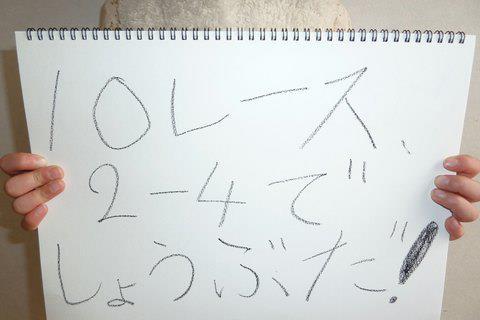 10レース、
2-4で
しょうぶだ!